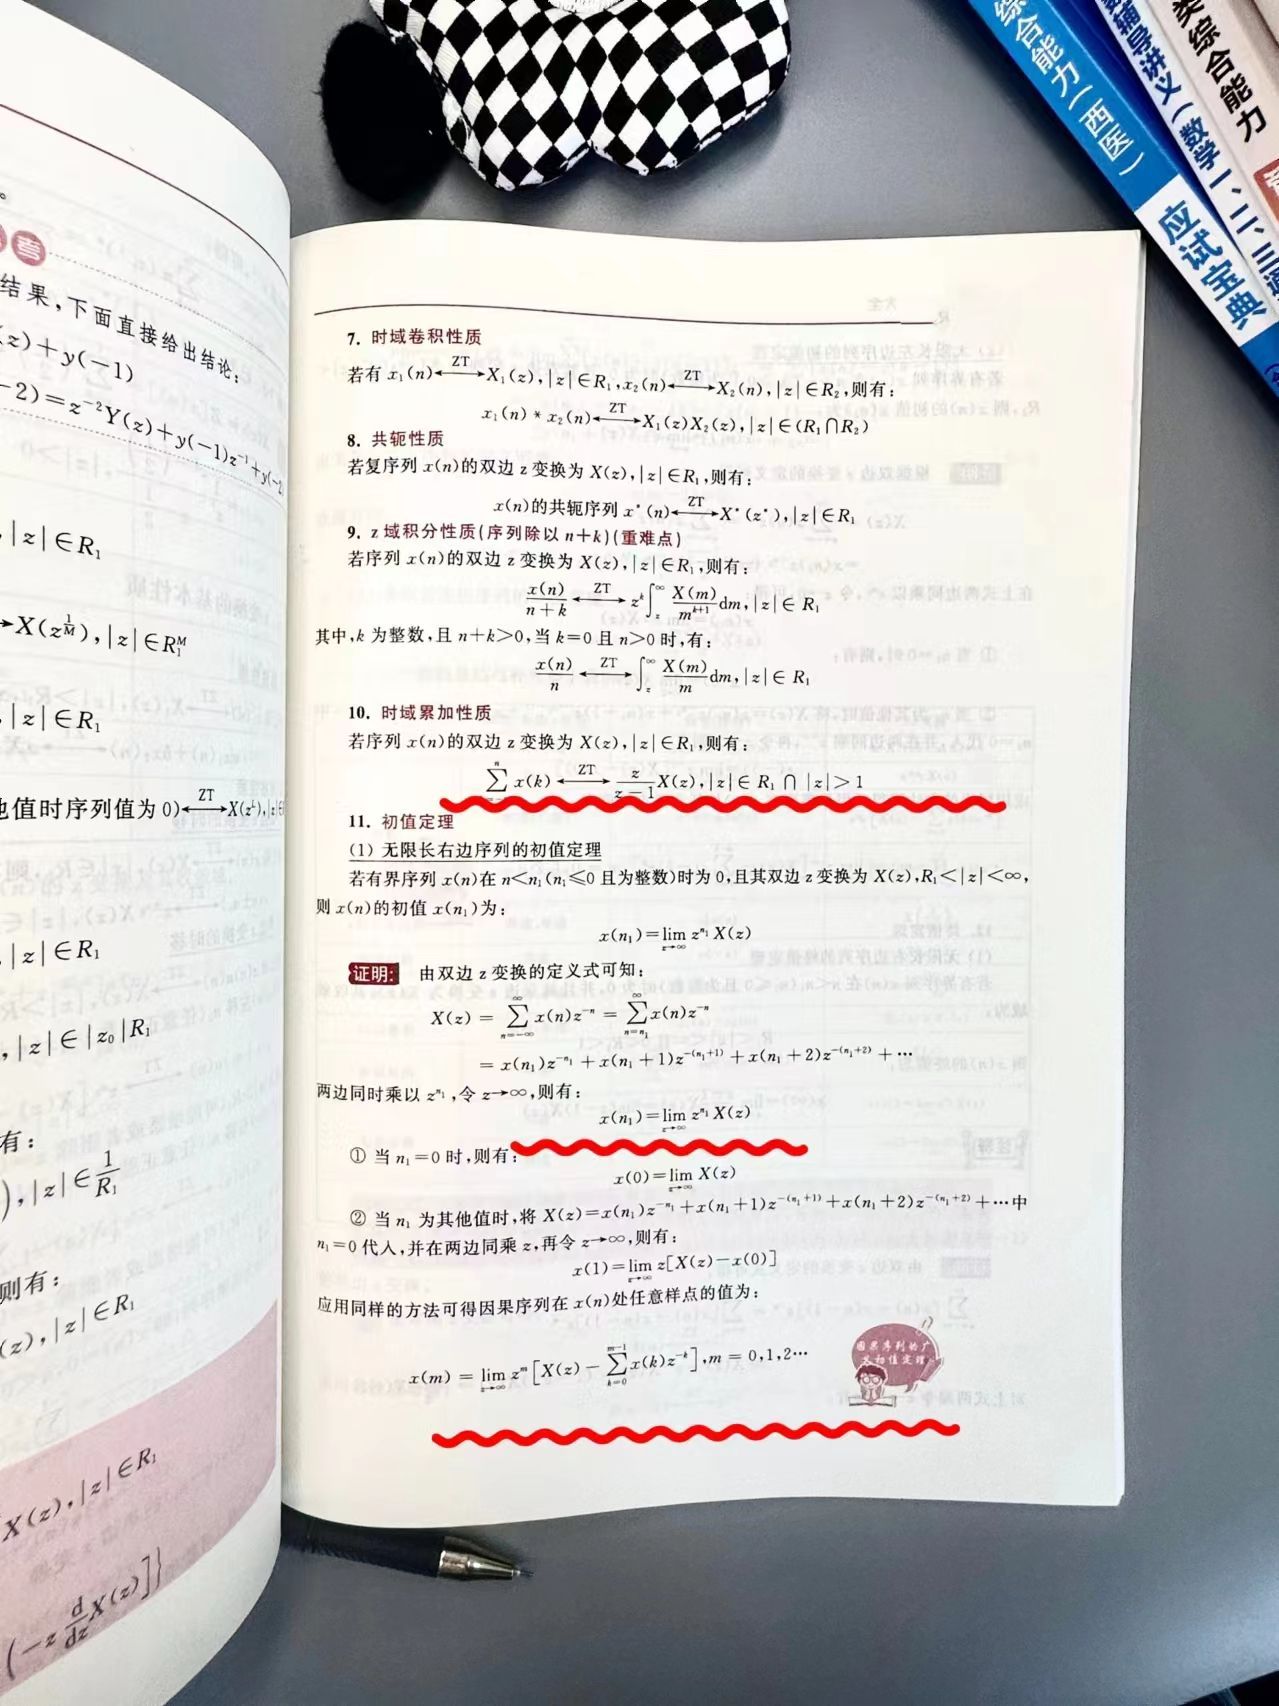 综合能力(西医)
应试宝典
辅导讲义(数学一、二、三
类综合能力
考
结果,下面直接给出结论:
z)+y(-1)
-2)=z⁻²Y(z)+y(-1)z⁻¹+y(-2
,|z|∈R₁
→X(z^{1/M}),|z|∈R₁ᴹ
,|z|∈R₁
他值时序列值为0)←ZT→X(zᴸ),|z|∈
,|z|∈R₁
,|z|∈|z₀|R₁
有:
),|z|∈1/R₁
则有:
(z),|z|∈R₁
X(z),|z|∈R₁
(-z d/dz X(z)]}
7. 时域卷积性质
若有 x₁(n)←ZT→X₁(z),|z|∈R₁,x₂(n)←ZT→X₂(n),|z|∈R₂,则有:
x₁(n)*x₂(n)←ZT→X₁(z)X₂(z),|z|∈(R₁∩R₂)
8. 共轭性质
若复序列 x(n)的双边 z 变换为 X(z),|z|∈R₁,则有:
x(n)的共轭序列 x*(n)←ZT→X*(z*),|z|∈R₁
9. z 域积分性质(序列除以 n+k)(重难点)
若序列 x(n)的双边 z 变换为 X(z),|z|∈R₁,则有:
x(n)/(n+k) ←ZT→ zᵏ∫_z^∞ X(m)/m^{k+1} dm,|z|∈R₁
其中,k 为整数,且 n+k>0,当 k=0 且 n>0 时,有:
x(n)/n ←ZT→ ∫_z^∞ X(m)/m dm,|z|∈R₁
10. 时域累加性质
若序列 x(n)的双边 z 变换为 X(z),|z|∈R₁,则有:
∑ⁿ x(k) ←ZT→ z/(z-1) X(z),|z|∈R₁∩|z|>1
11. 初值定理
(1) 无限长右边序列的初值定理
若有界序列 x(n)在 n<n₁(n₁≤0 且为整数)时为 0,且其双边 z 变换为 X(z),R₁<|z|<∞,
则 x(n)的初值 x(n₁)为:
x(n₁)=lim_{z→∞} z^{n₁} X(z)
证明: 由双边 z 变换的定义式可知:
X(z) = ∑_{n=-∞}^{∞} x(n)z⁻ⁿ = ∑_{n=n₁}^{∞} x(n)z⁻ⁿ
= x(n₁)z^{-n₁}+x(n₁+1)z^{-(n₁+1)}+x(n₁+2)z^{-(n₁+2)}+⋯
两边同时乘以 z^{n₁},令 z→∞,则有:
x(n₁)=lim_{z→∞} z^{n₁} X(z)
① 当 n₁=0 时,则有:
x(0)=lim_{z→∞} X(z)
② 当 n₁ 为其他值时,将 X(z)=x(n₁)z^{-n₁}+x(n₁+1)z^{-(n₁+1)}+x(n₁+2)z^{-(n₁+2)}+⋯中
n₁=0 代入,并在两边同乘 z,再令 z→∞,则有:
x(1)=lim_{z→∞} z[X(z)-x(0)]
应用同样的方法可得因果序列在 x(n)处任意样点的值为:
x(m) = lim_{z→∞} zᵐ[X(z)-∑_{k=0}^{m-1} x(k)z⁻ᵏ],m=0,1,2⋯
因果序列的广
义初值定理